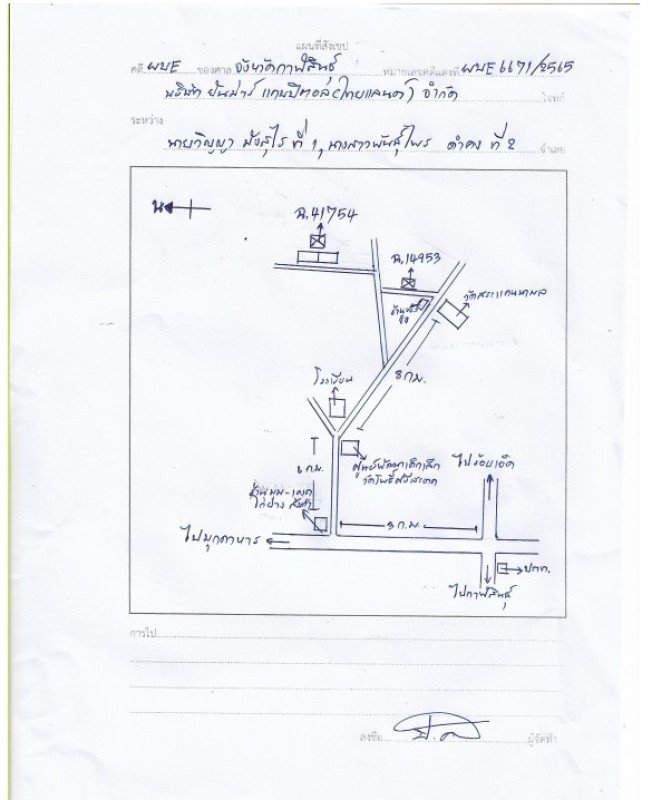 แผนที่สังเขป
คดี ผบE ของศาล จังหวัดกาฬสินธุ์ หมายเลขคดีแดงที่ ผบE 6671/2565
บริษัท ยันม่าร์ แคปปิตอล (ไทยแลนด์) จำกัด โจทก์
ระหว่าง
นายวิญญา ที่ 1, นางสาวพันธุ์ไพร ที่ 2 จำเลย
น
ฉ.41754
ฉ.14953
8 กม.
โรงเรียน
6 กม.
ศูนย์พัฒนาเด็กเล็ก
วัดโพธิ์ศรีสะอาด
ไปร้อยเอ็ด
ไก่ย่าง
9 กม.
ไปมุกดาหาร
ปตท.
ไปกาฬสินธุ์
การไป
ลงชื่อ ผู้จัดทำ